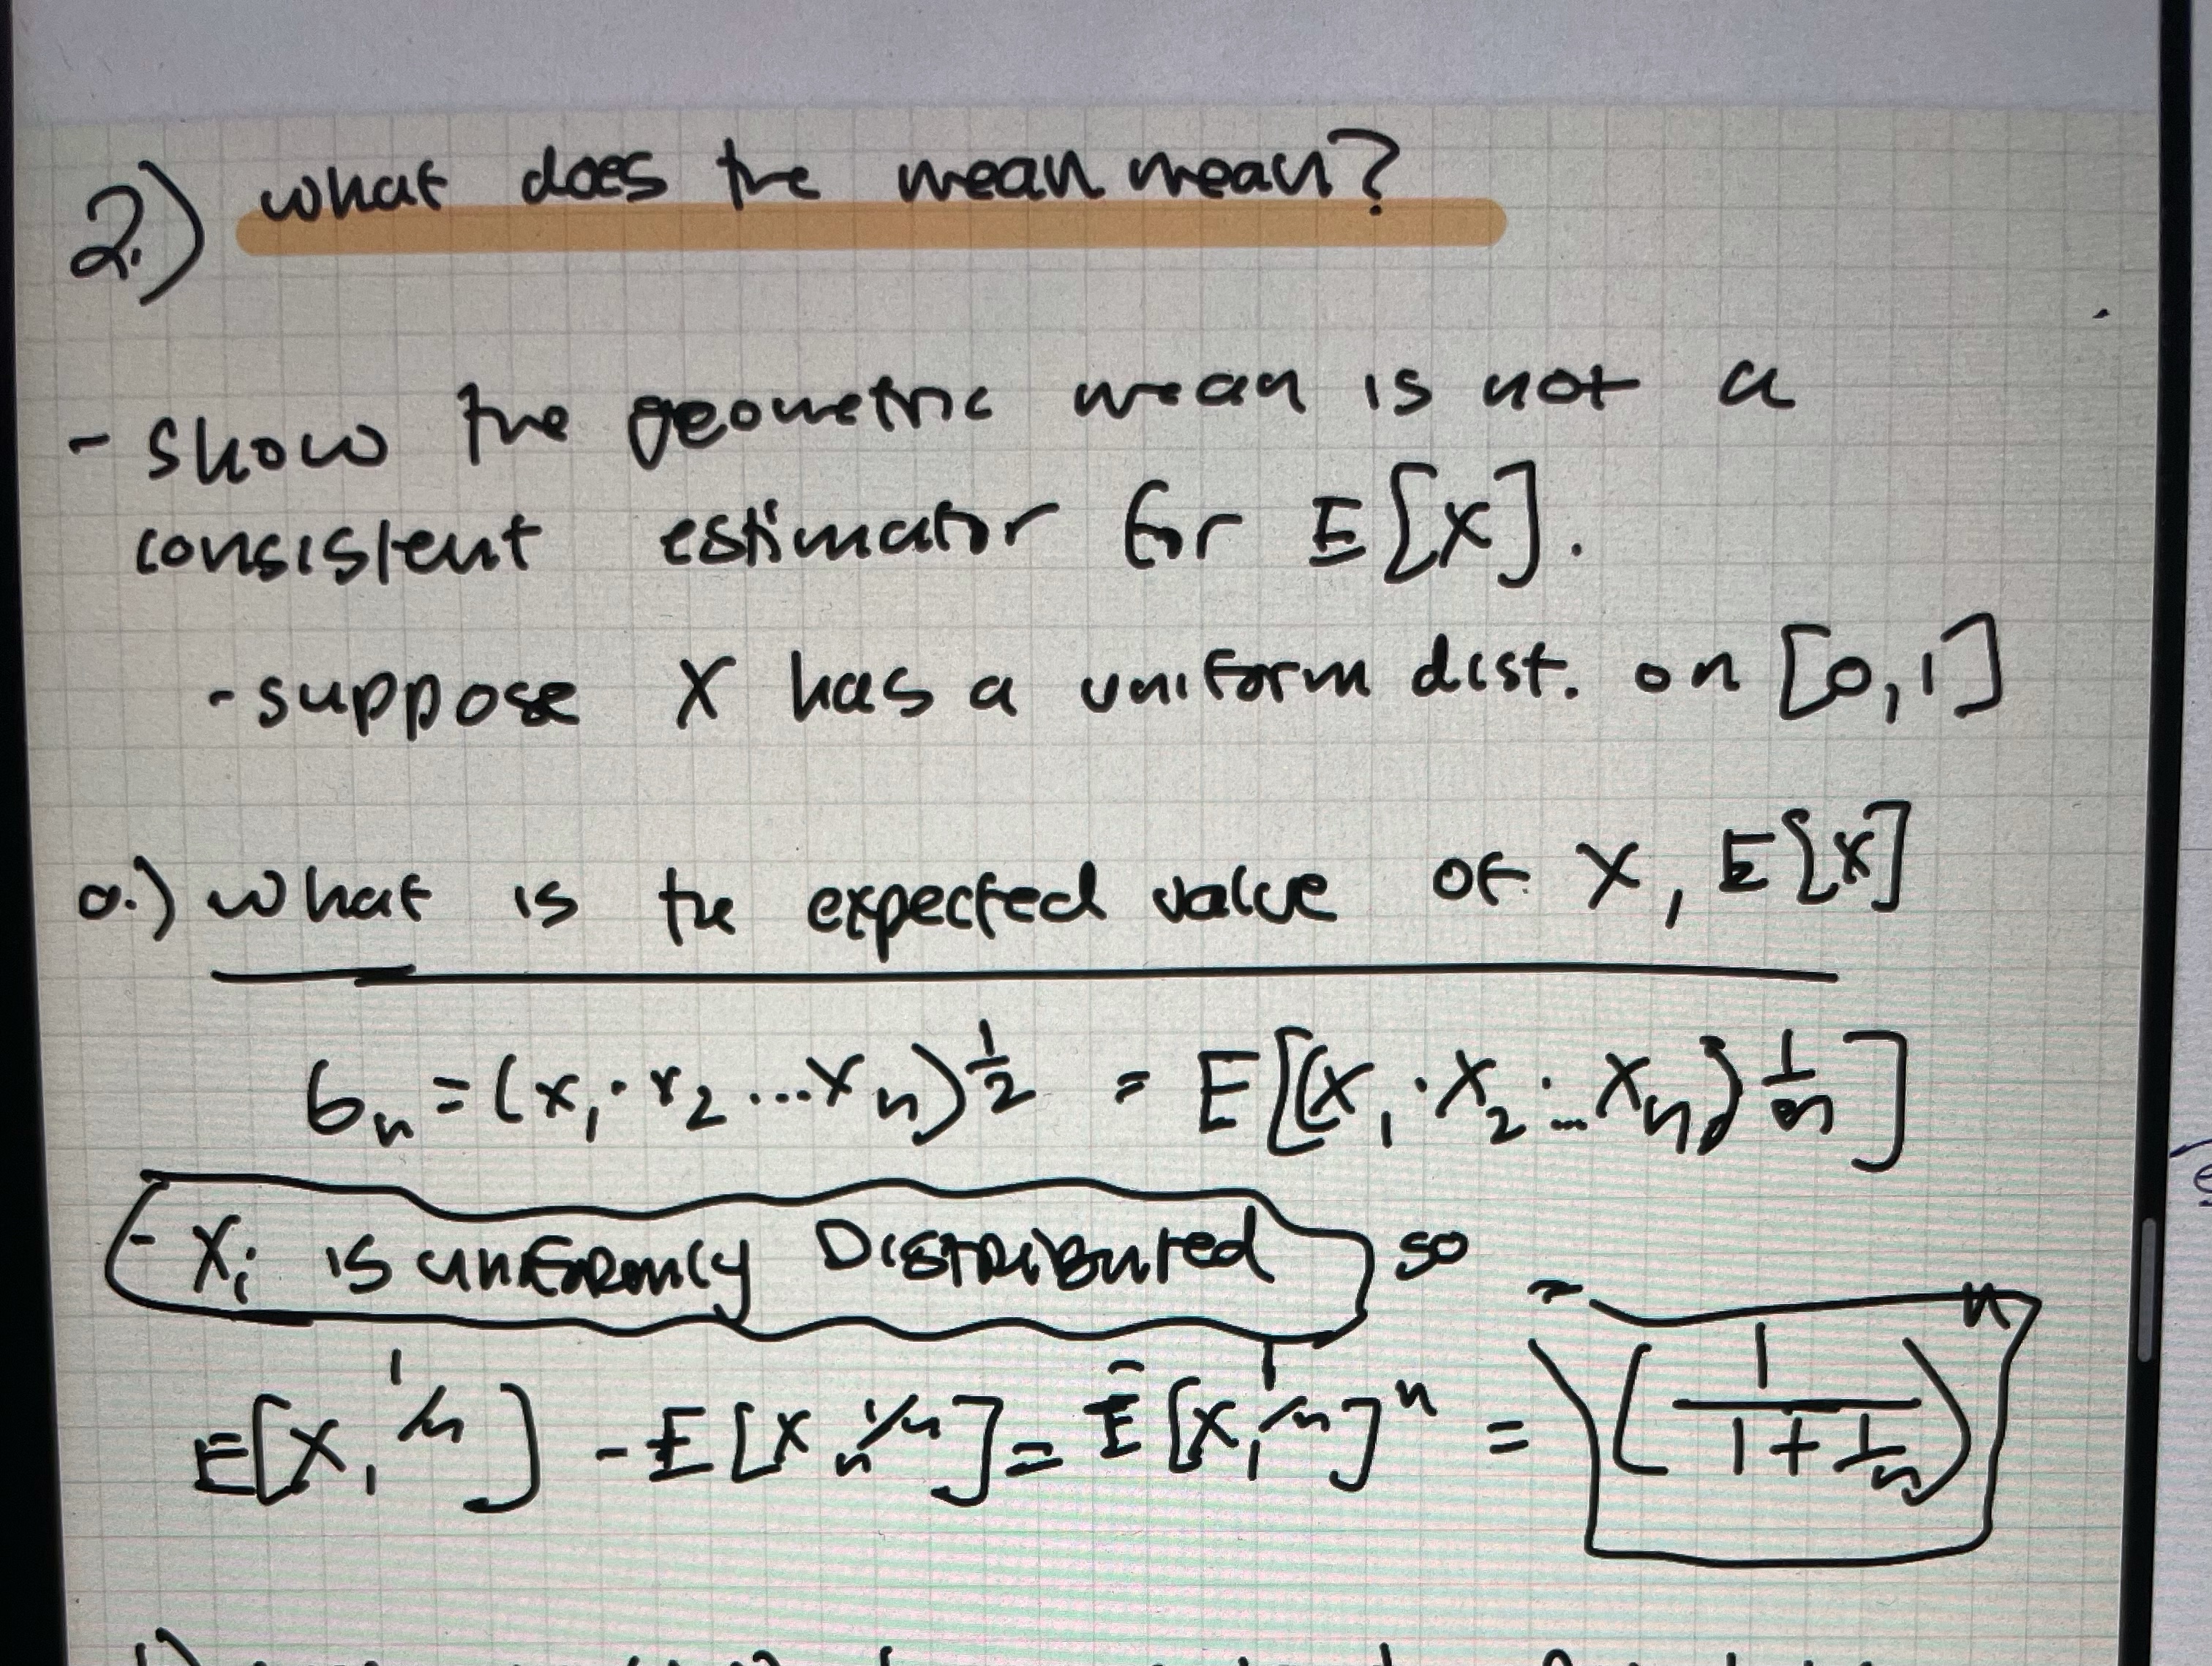 2.) what does the mean mean?
- show the geometric mean is not a
consistent estimator for E[X].
- suppose X has a uniform dist. on [0,1]
a.) what is the expected value of X, E[X]
Gn = (x₁·x₂...xn)^1/2 = E[(x₁·x₂·...xn)^1/n]
- Xi is uniformly Distributed so
E[X₁^1/n] - E[Xn^1/n] = E[X₁^1/n]^n = = (1/(1+1/n))^n